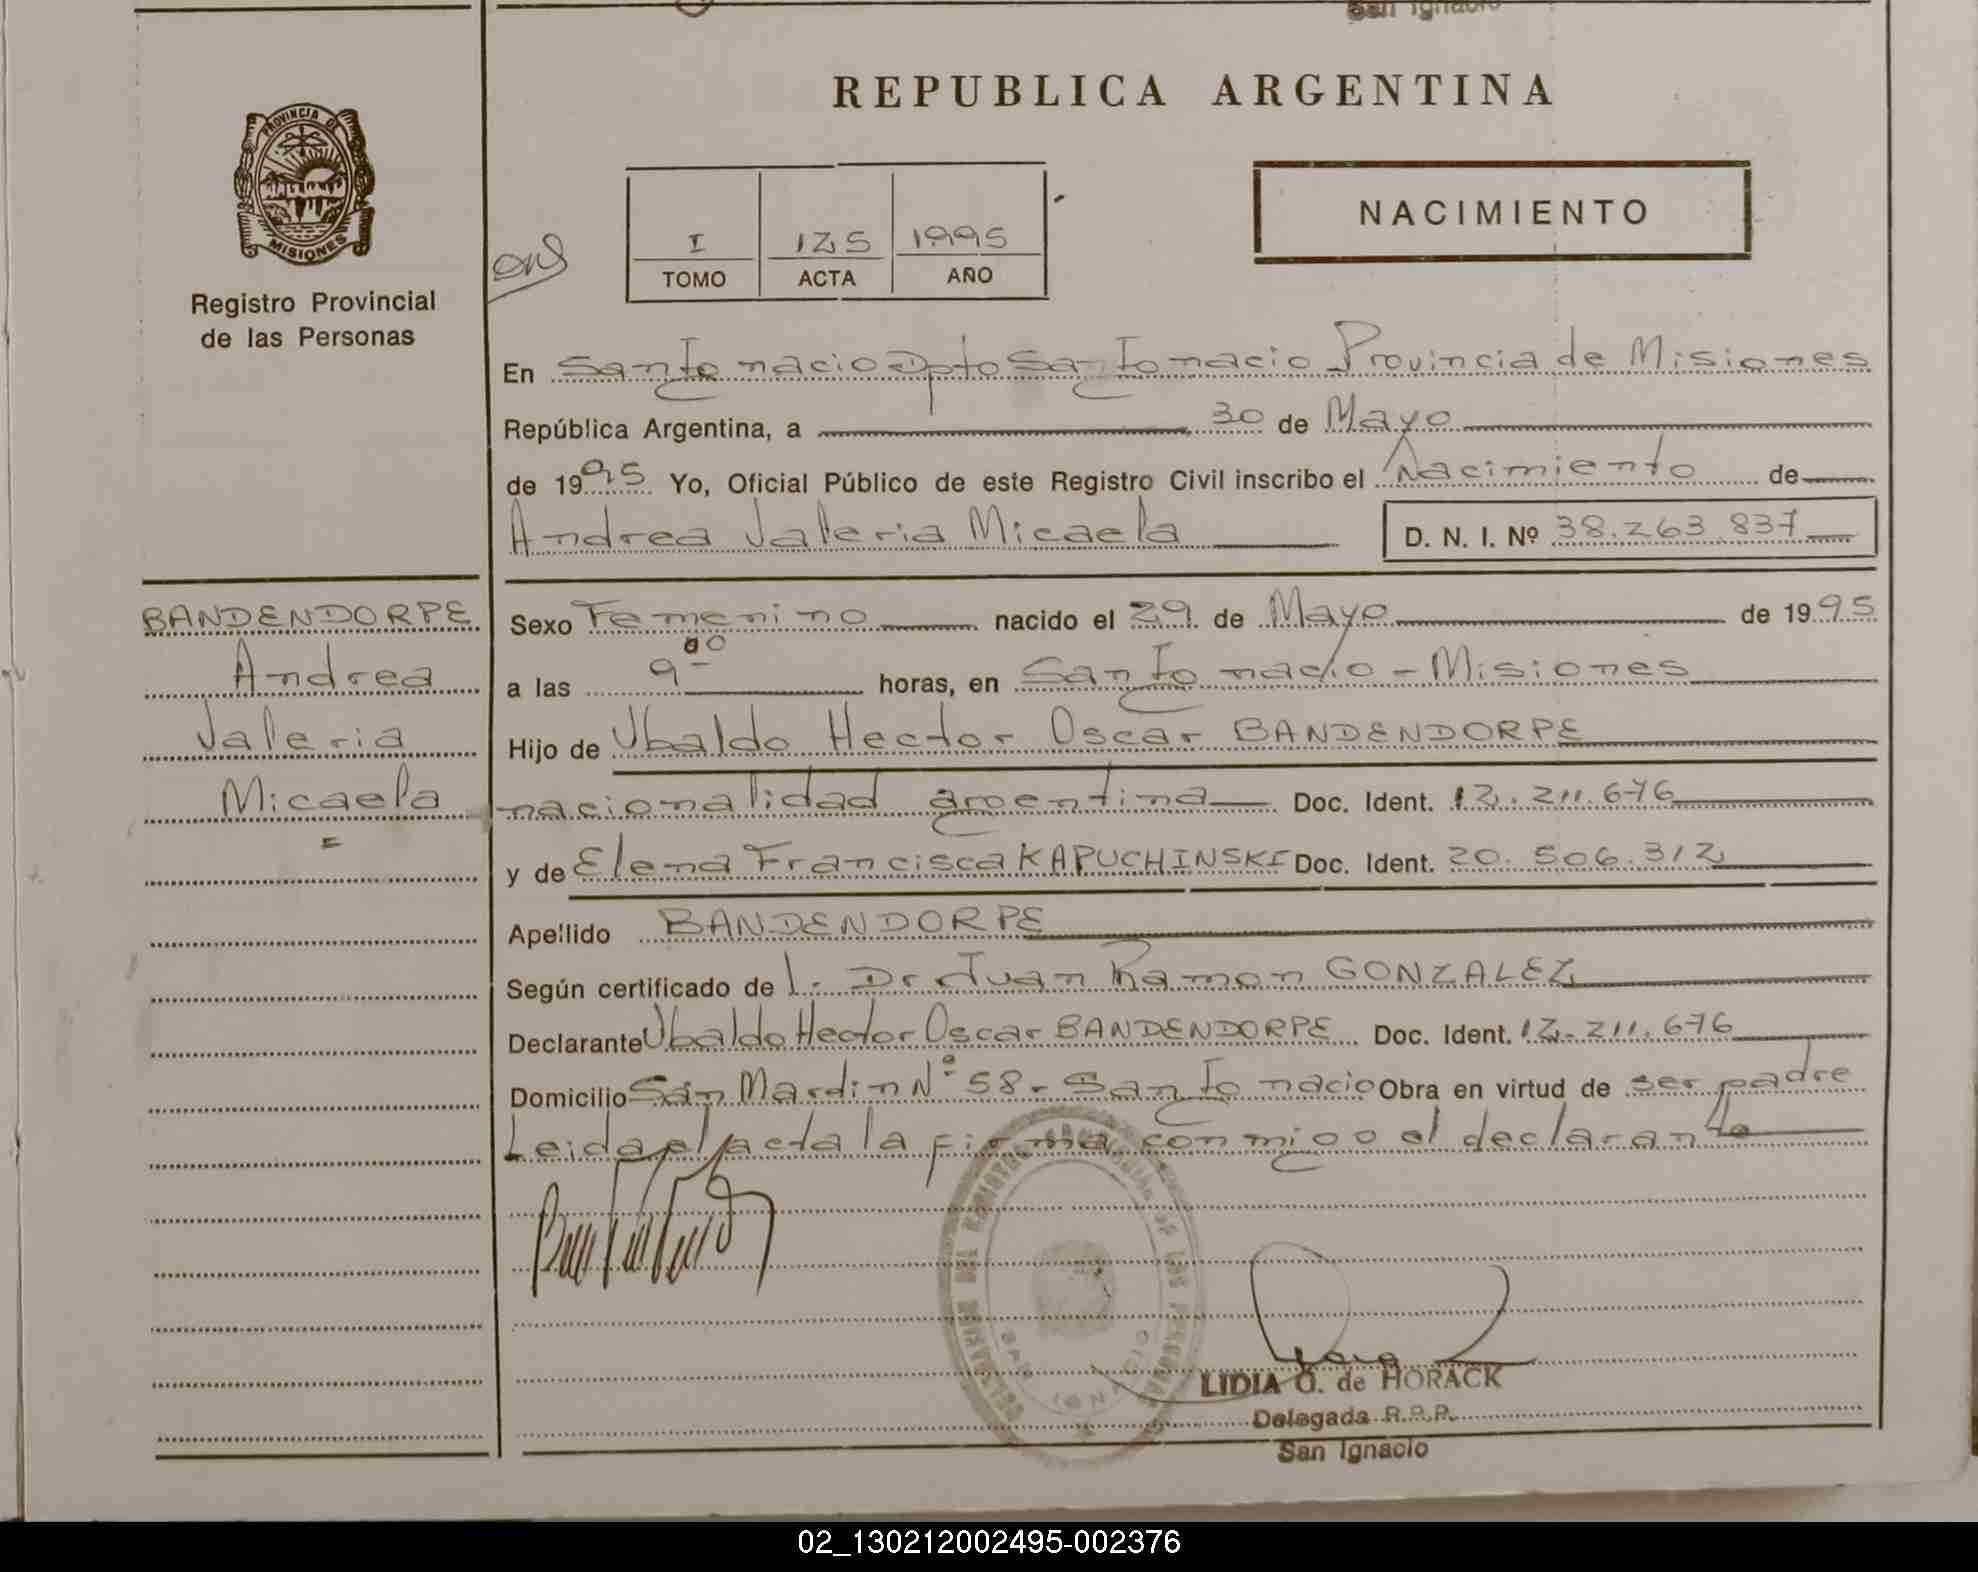 San Ignacio
REPUBLICA ARGENTINA
PROVINCIA DE
MISIONES
Registro Provincial
de las Personas
I 125 1995
TOMO ACTA AÑO
NACIMIENTO
En San Ignacio Dpto San Ignacio Provincia de Misiones
República Argentina, a 30 de Mayo
de 1995 Yo, Oficial Público de este Registro Civil inscribo el Nacimiento de
Andrea Valeria Micaela D. N. I. Nº 38.263.837
BANDENDORPE
Andrea
Valeria
Micaela
Sexo Femenino nacido el 29 de Mayo de 1995
a las 9⁰⁰ horas, en San Ignacio - Misiones
Hijo de Ubaldo Hector Oscar BANDENDORPE
nacionalidad argentina Doc. Ident. 12.211.676
y de Elena Francisca KAPUCHINSKI Doc. Ident. 20.506.312
Apellido BANDENDORPE
Según certificado de l. Dr Juan Ramon GONZALEZ
Declarante Ubaldo Hector Oscar BANDENDORPE Doc. Ident. 12.211.676
Domicilio San Martin Nº 58 - San Ignacio Obra en virtud de ser padre
Leida el acta la firma conmigo el declarante
SAN IGNACIO
LIDIA G. de HORACK
Delegada R.P.P.
San Ignacio
02_130212002495-002376